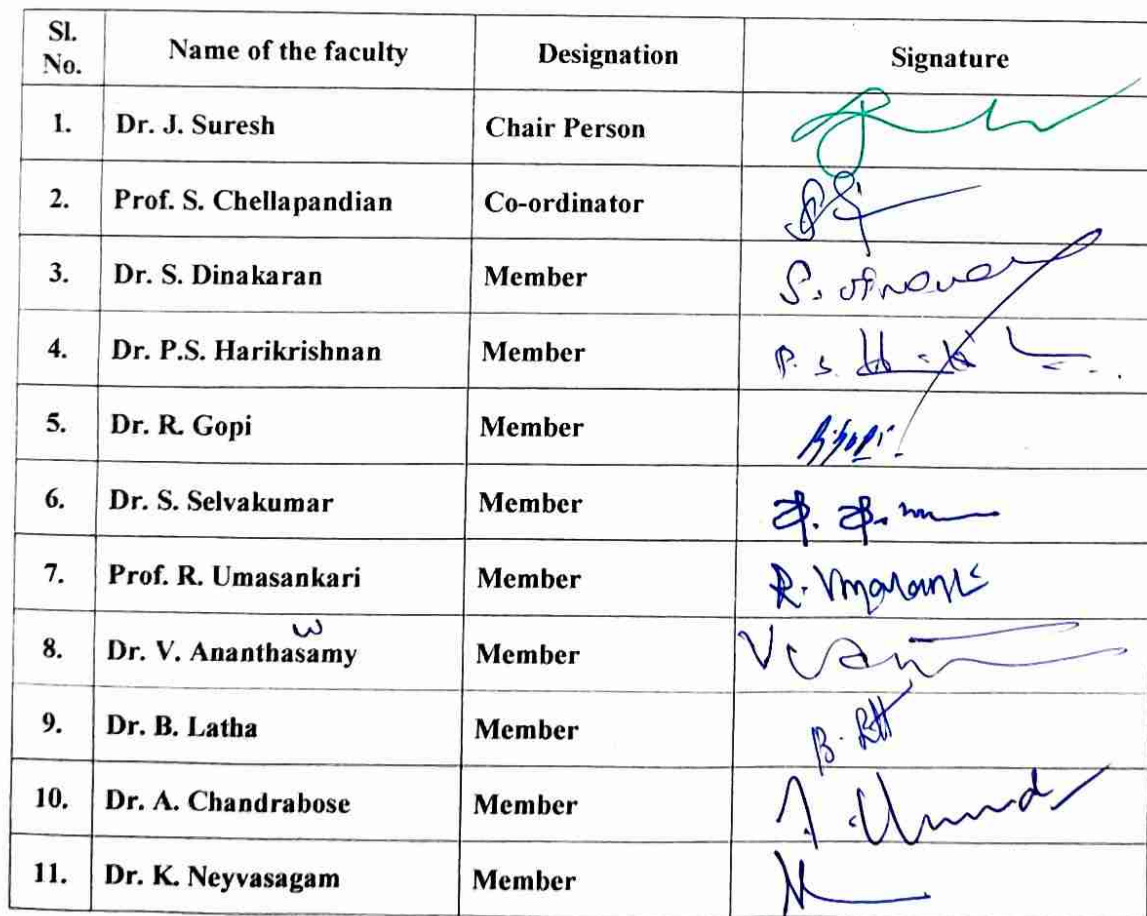 Sl. No. Name of the faculty Designation Signature
1. Dr. J. Suresh Chair Person
2. Prof. S. Chellapandian Co-ordinator
3. Dr. S. Dinakaran Member
4. Dr. P.S. Harikrishnan Member P. S.
5. Dr. R. Gopi Member
6. Dr. S. Selvakumar Member
7. Prof. R. Umasankari Member R.
w
8. Dr. V. Ananthasamy Member V
9. Dr. B. Latha Member B.
10. Dr. A. Chandrabose Member
11. Dr. K. Neyvasagam Member